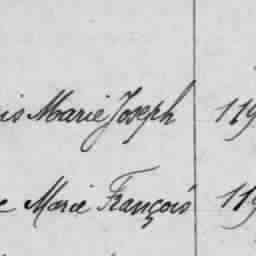 is Marie Joseph 119
e Marie François 119